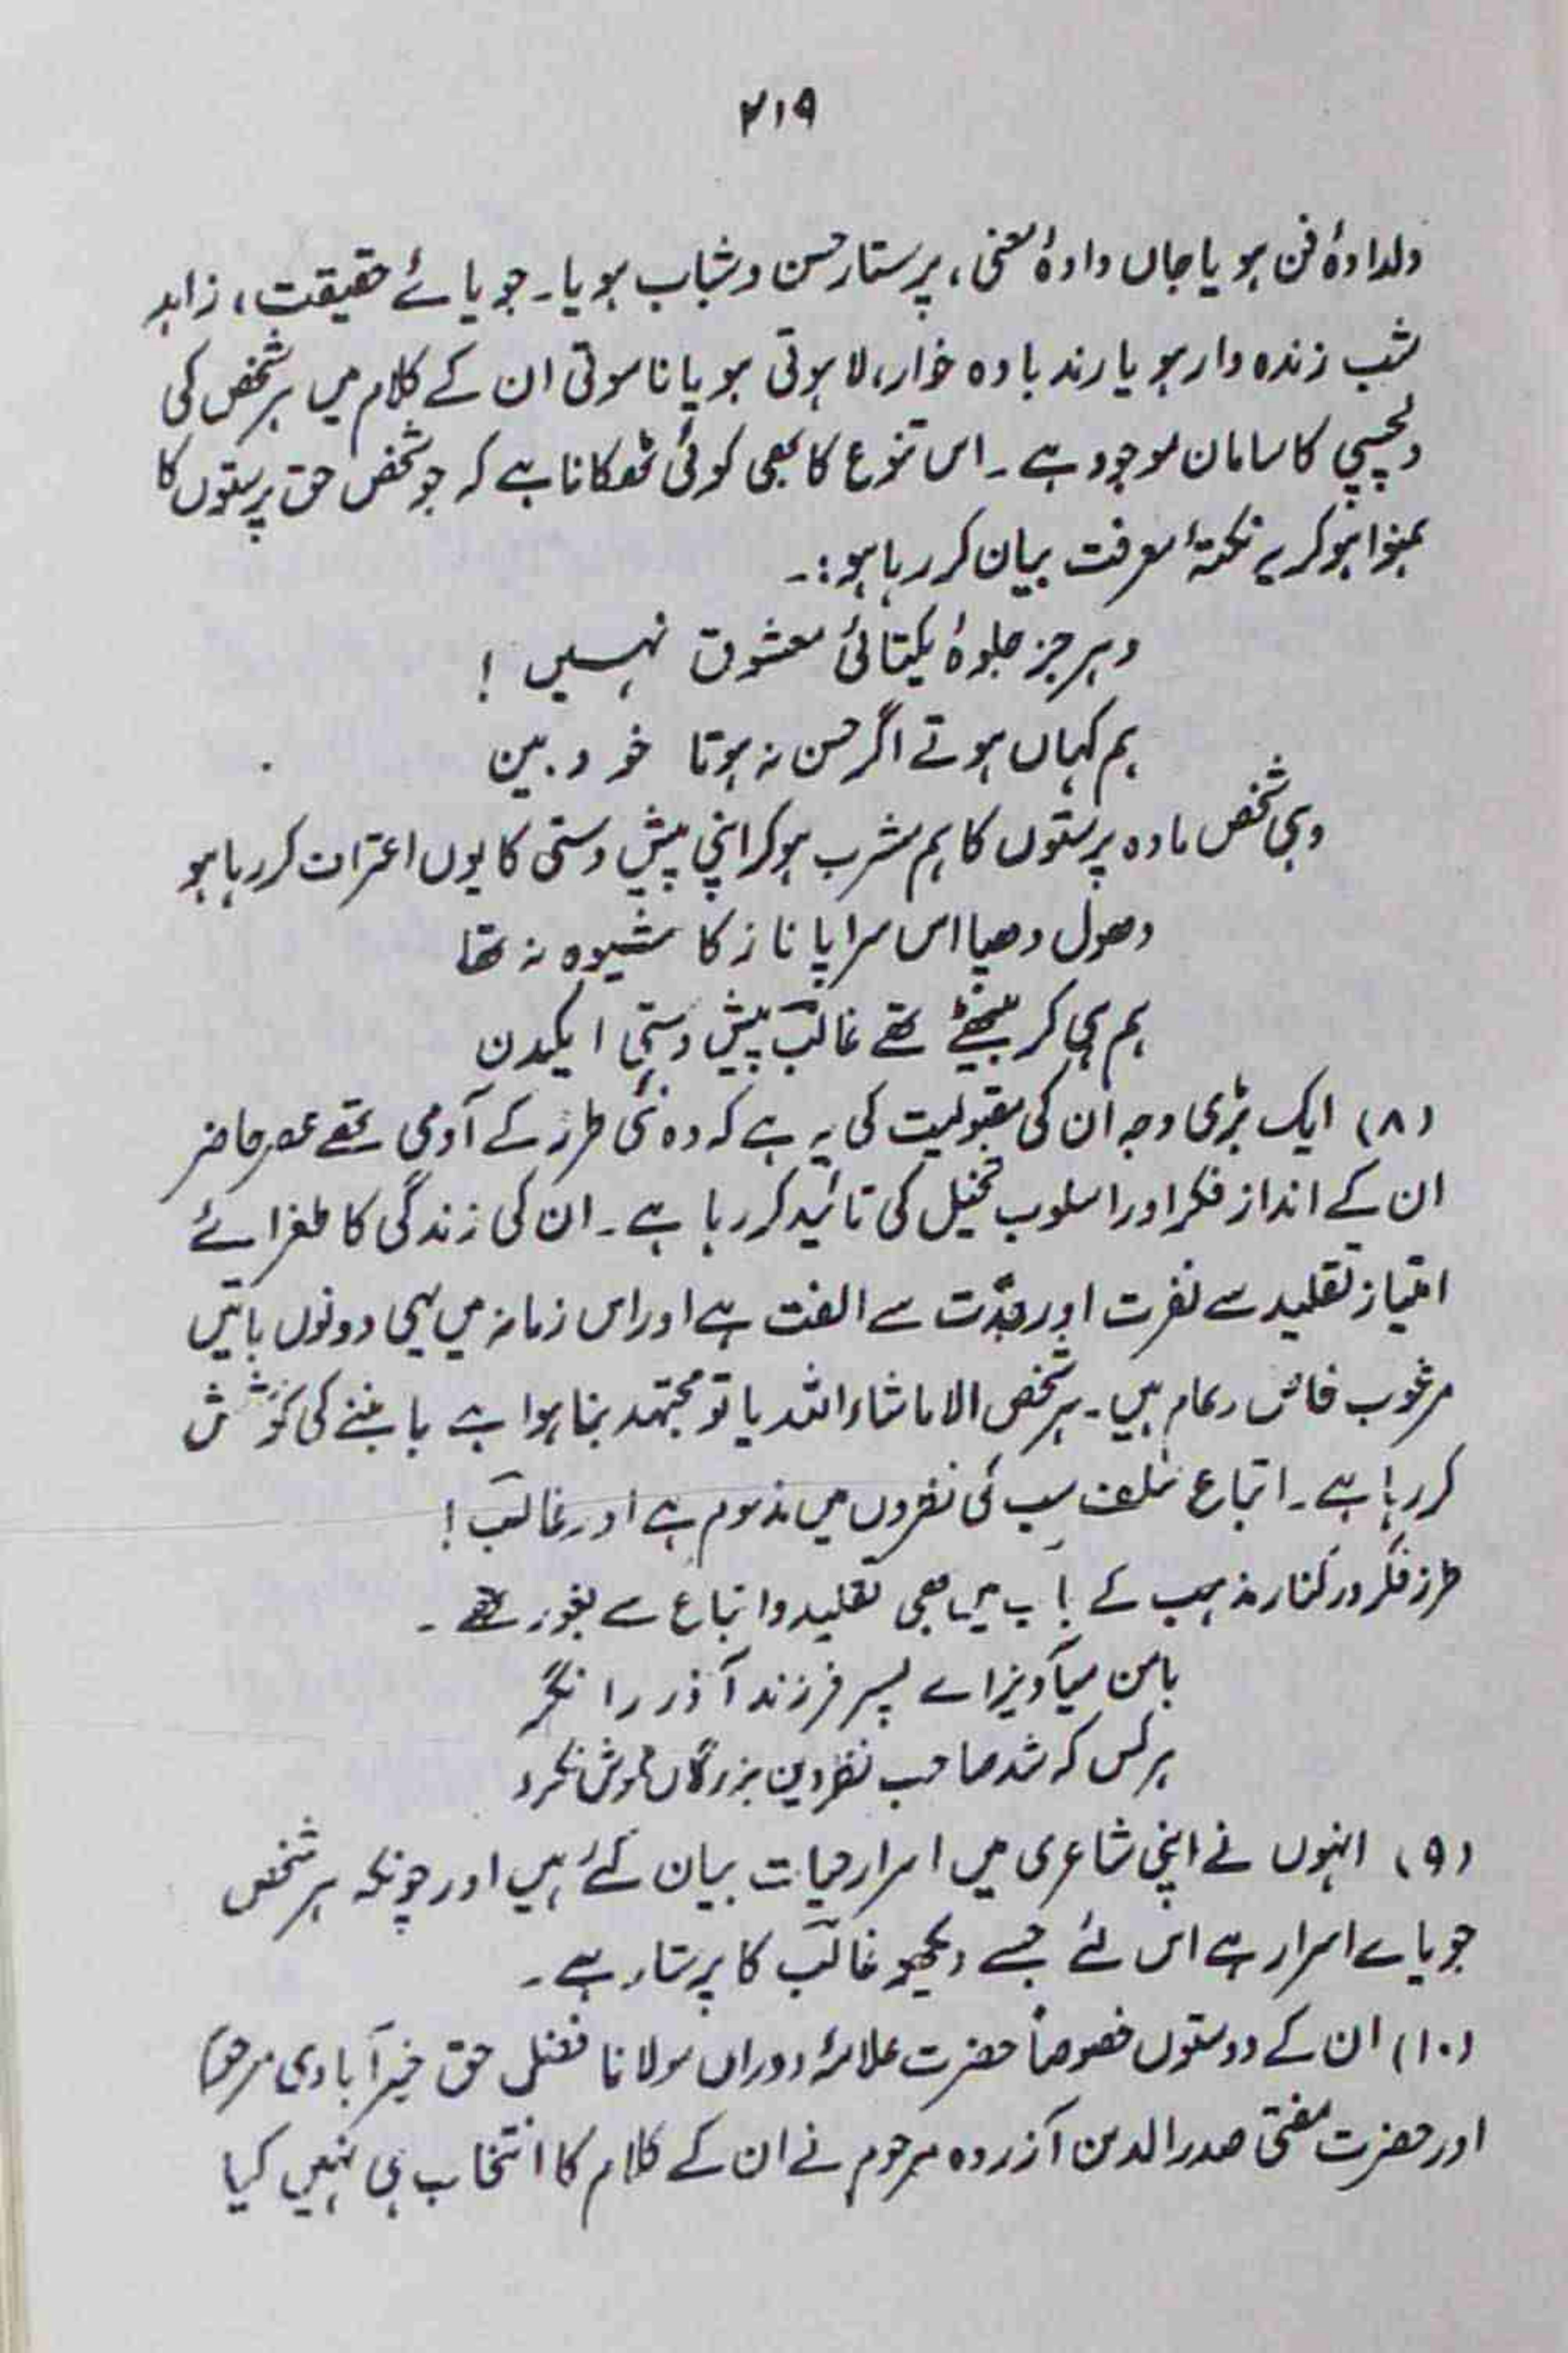 ۲۱۹
دلدادۂ فن ہو یا جاں دادۂ معنی، پرستار حسن و شباب ہو یا۔ جویائے حقیقت، زاہد
شب زندہ دار ہو یا رند بادہ خوار، لاہوتی ہو یا ناسوتی ان کے کلام میں ہر شخص کی
دلچسپی کا سامان موجود ہے۔ اس تنوع کا بھی کوئی ٹھکانا ہے کہ جو شخص حق پرستوں کا
ہمنوا ہو کر یہ نکتۂ معرفت بیان کر رہا ہو:۔
دہر جز جلوۂ یکتائی معشوق نہیں !
ہم کہاں ہوتے اگر حسن نہ ہوتا خود بین
وہی شخص مادہ پرستوں کا ہم مشرب ہو کر اپنی پیش دستی کا یوں اعتراف کر رہا ہو
دھول دھپا اس سراپا ناز کا شیوہ نہ تھا
ہم ہی کر بیٹھے تھے غالبؔ پیش دستی ایکدن
(۸) ایک بڑی وجہ ان کی مقبولیت کی یہ ہے کہ وہ نئی طرز کے آدمی تھے عصر حاضر
ان کے انداز فکر اور اسلوب تخیل کی تائید کر رہا ہے۔ ان کی زندگی کا طغرائے
امتیاز تقلید سے نفرت اور جدّت سے الفت ہے اور اس زمانہ میں یہی دونوں باتیں
مرغوب خاص و عام ہیں۔ ہر شخص الا ماشاء اللہ یا تو مجتہد بنا ہوا ہے یا بننے کی کوشش
کر رہا ہے۔ اتباع سلف سب کی نظروں میں مذموم ہے اور غالبؔ !
طرز فکر در کنار مذہب کے باب میں بھی تقلید و اتباع سے نفور تھے۔
بامن میآویز اے پسر فرزند آذر را نگر
ہر کس کہ شد صاحب نظر دین بزرگاں خوش نکرد
(۹) انہوں نے اپنی شاعری میں اسرار حیات بیان کئے ہیں اور چونکہ ہر شخص
جویاے اسرار ہے اس لئے جسے دیکھو غالبؔ کا پرستار ہے۔
(۱۰) ان کے دوستوں خصوصاً حضرت علامۂ دوراں مولانا فضل حق خیرآبادی مرحوم
اور حضرت مفتی صدرالدین آزردہ مرحوم نے ان کے کلام کا انتخاب ہی نہیں کیا